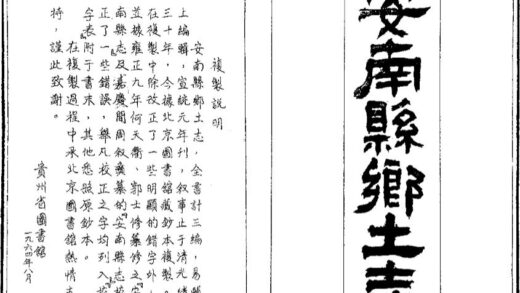 安南縣鄉土志
複製説明
安南縣鄉土志，全書計三編，易
上編輯，宣統元年刊，叙事止于清光緒
三十年，今據北京圖書館藏鈔本複製。
在複製中除改正了一些明顯的錯字外，
並據雍正九年何天衢、郭士修纂之安
南縣志及嘉慶間周叙彝纂的安南縣志校
正了一些錯誤，舉凡校正之字均列入校
字表，附于書末，其他悉照原鈔本。
在複製過程中承北京圖書館熱情支
持，謹此致謝。
貴州省圖書館
一九六四年八月